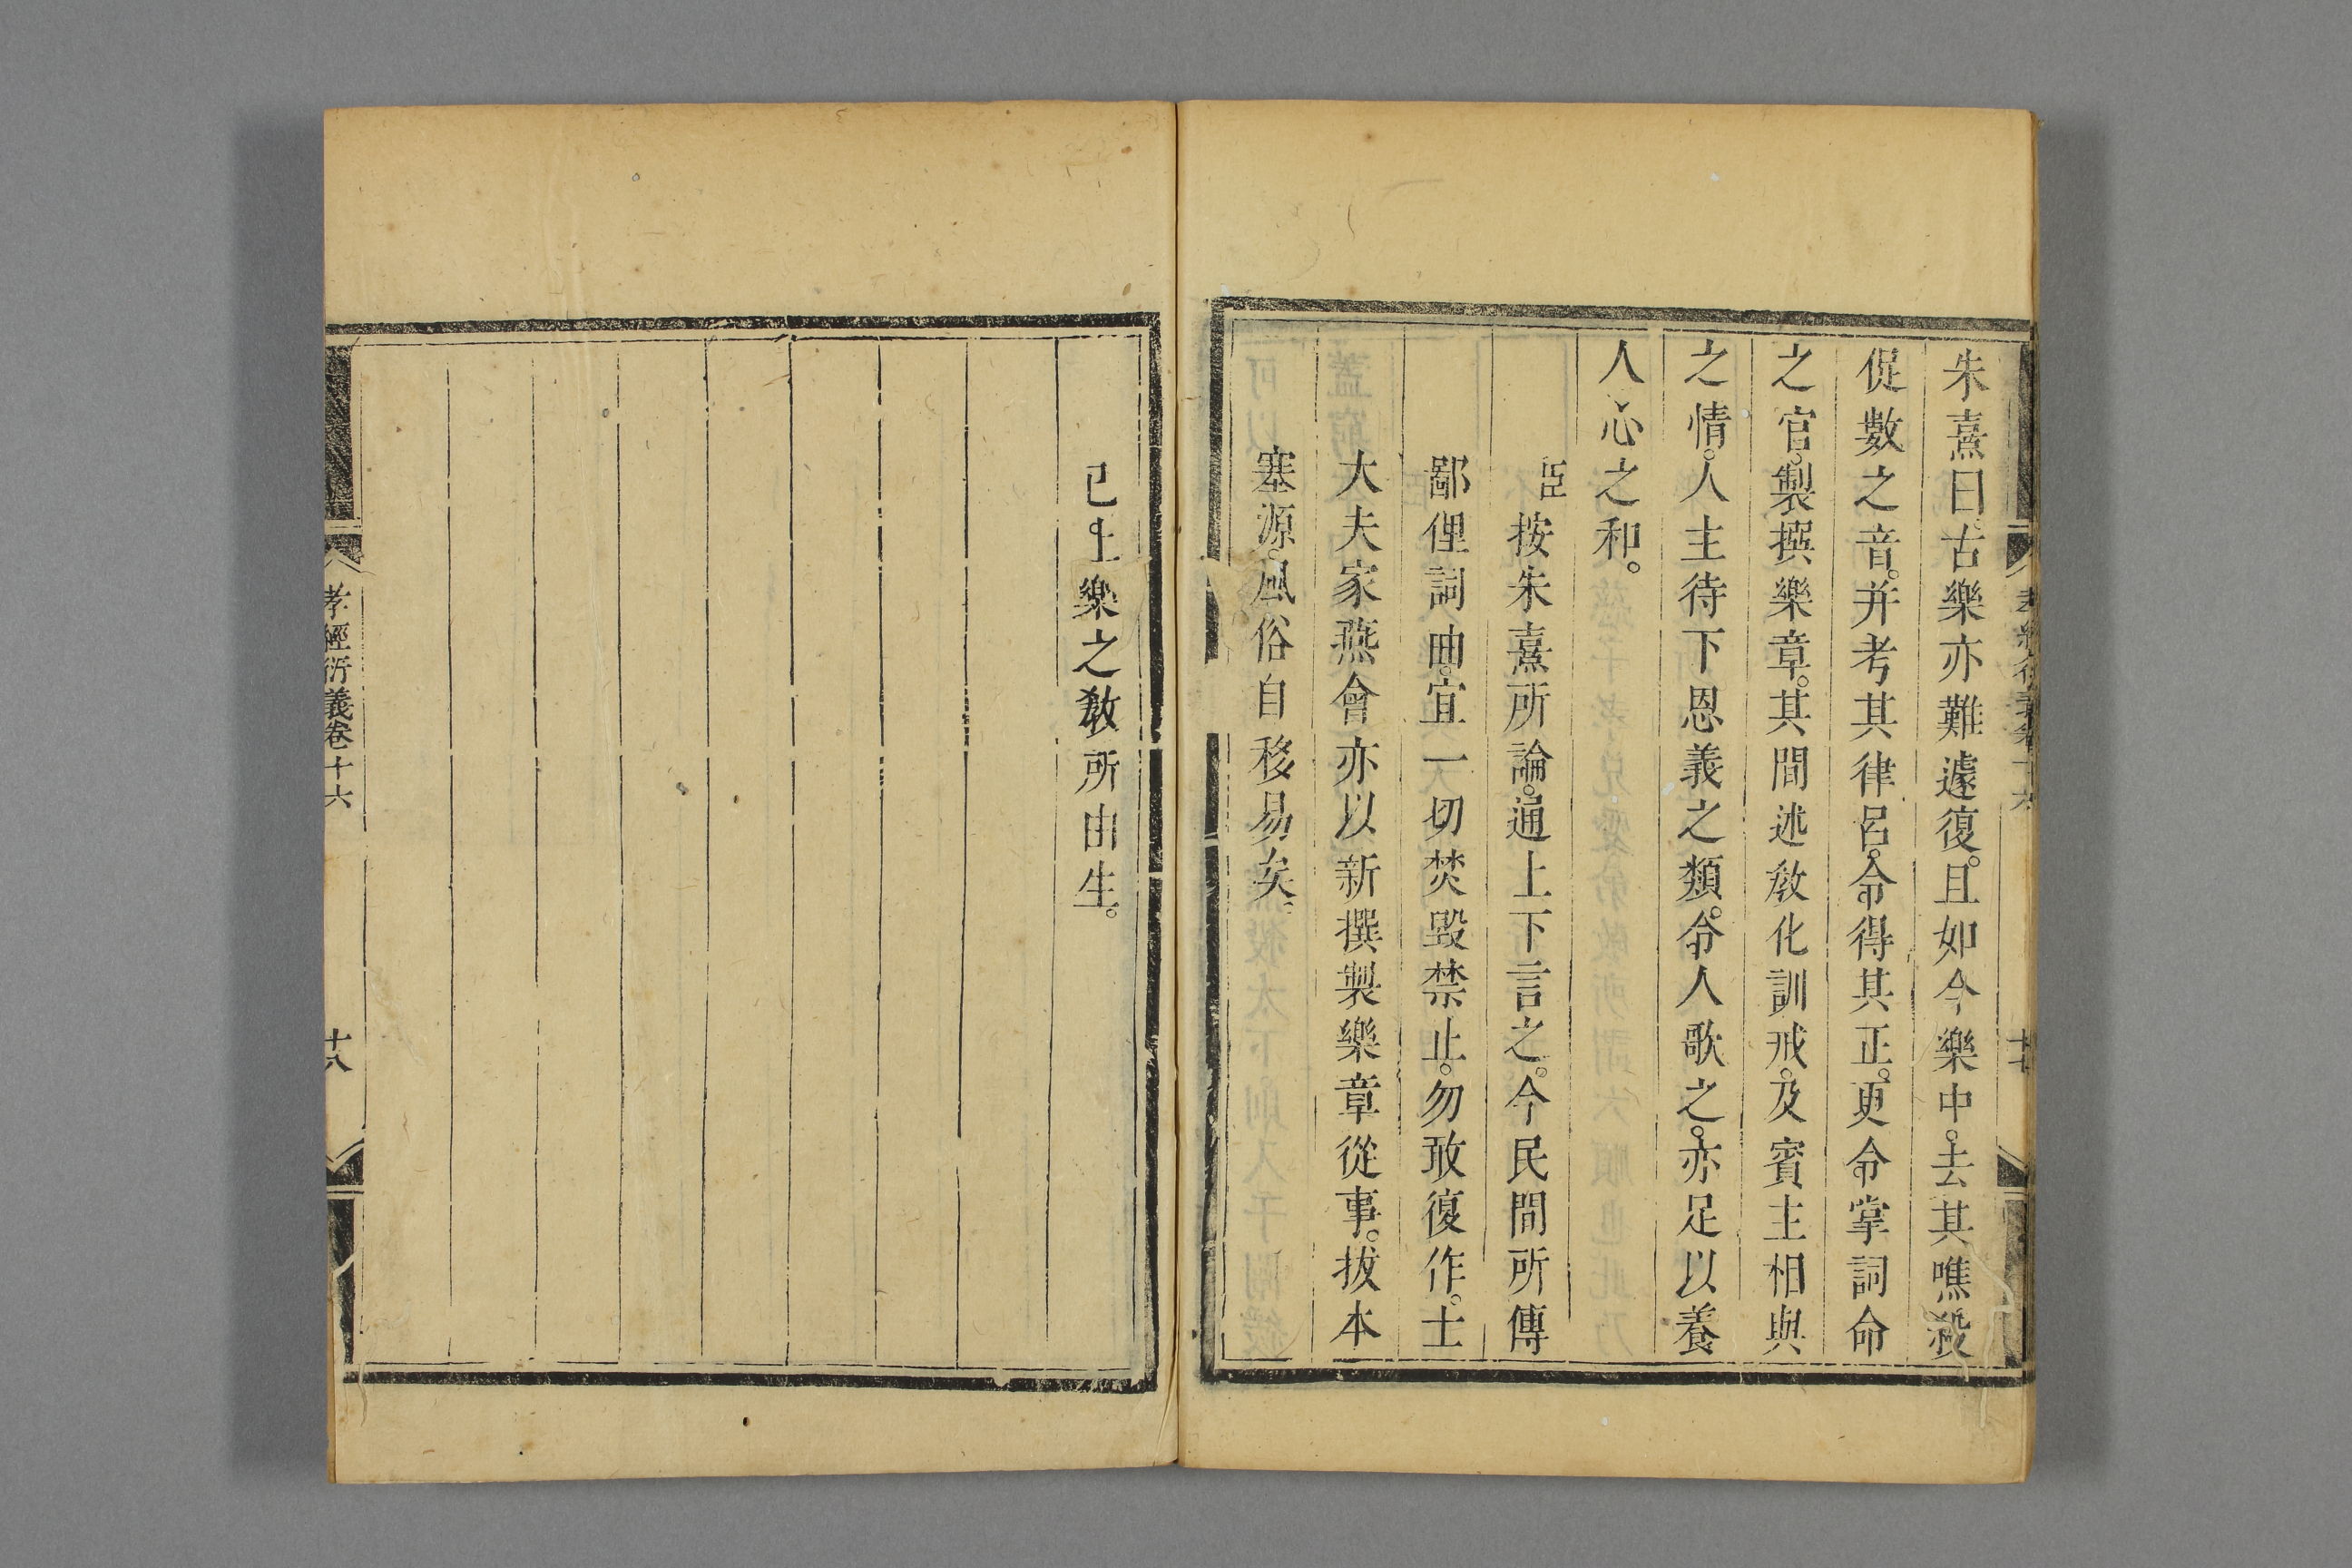 朱熹曰。古樂亦難遽復。且如今樂中。去其噍殺
促數之音。并考其律呂。令得其正。更令掌詞命
之官。製撰樂章。其間述教化訓戒。及賓主相與
之情。人主待下恩義之類。令人歌之。亦足以養
人心之和。
臣按朱熹所論。通上下言之。今民間所傳
鄙俚詞曲。宜一切焚毀禁止。勿敢復作。士
大夫家燕會亦以新撰製樂章從事。拔本
塞源。風俗自移易矣。
已上。樂之教所由生。
孝經衍義卷十六
十八